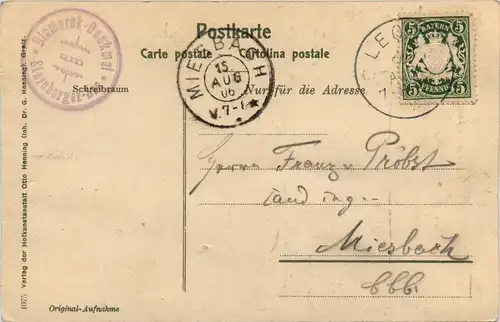 Postkarte
Carte postale
Cartolina postale
Bismarck-Denkmal
Starnberger-See
MIESBACH
15
AUG
06
V.7-
LEO
BAYERN
5 5
PFENNIG
Schreibraum
Nur für die Adresse
Herrn Franz v. Pröbst
Cand ing.
Miesbach
bbb.
4075 Verlag der Hofkunstanstalt Otto Henning (Inh. Dr. G. Henning), Greiz.
Original-Aufnahme